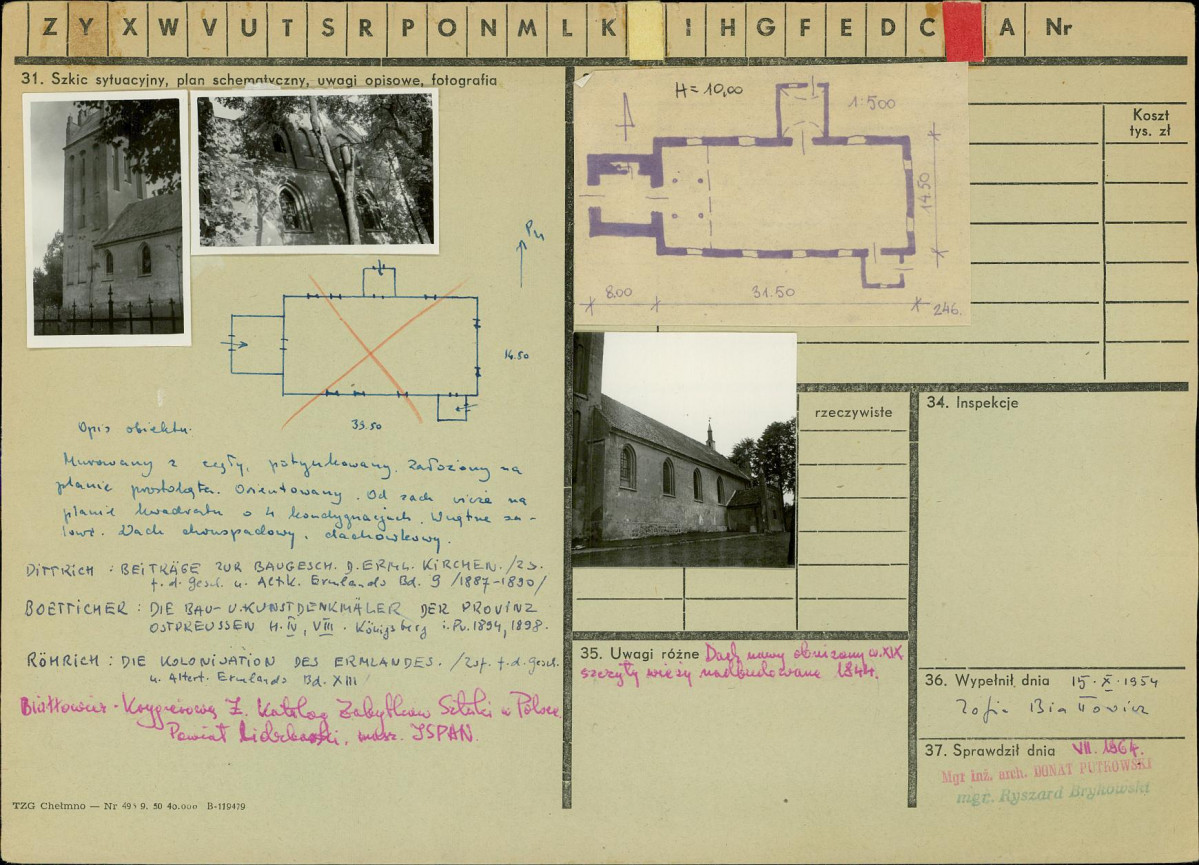 Z Y X W V U T S R P O N M L K I H G F E D C A Nr
31. Szkic sytuacyjny, plan schematyczny, uwagi opisowe, fotografia
Pn
14.50
33.50
Opis obiektu.
Murowany z cegły, potynkowany. Założony na
planie prostokąta. Orientowany. Od zach. wieża na
planie kwadratu o 4 kondygnacjach. Wnętrze sa-
lowe. Dach dwuspadowy, dachówkowy.
DITTRICH : BEITRÄGE ZUR BAUGESCH. D. ERML. KIRCHEN. /Zs.
f. d. Gesch. u. Altk. Ermlands Bd. 9 /1887-1890/
BOETTICHER : DIE BAU- U. KUNSTDENKMÄLER DER PROVINZ
OSTPREUSSEN H. IV, VIII. Königsberg i. Pr. 1894, 1898.
RÖHRICH : DIE KOLONISATION DES ERMLANDES. /Zsf. f. d. Gesch.
u. Altert. Ermlands Bd. XIII/
Białłowicz-Krygierowa Z. Katalog Zabytków Sztuki w Polsce
Powiat Lidzbarski, masz. ISPAN.
TZG Chełmno — Nr 49 9. 50 40.000 B-119479
H = 10,00
1:500
14.50
8.00
31.50
246.
Koszt
tys. zł
rzeczywiste
34. Inspekcje
35. Uwagi różne Dach nawy obniżony w. XIX
szczyty wieży nadbudowane 1844.
36. Wypełnił dnia 15. X. 1954
Zofia Białłowicz
37. Sprawdził dnia VII. 1964.
Mgr inż. arch. DONAT PUTKOWSKI
mgr. Ryszard Brykowski